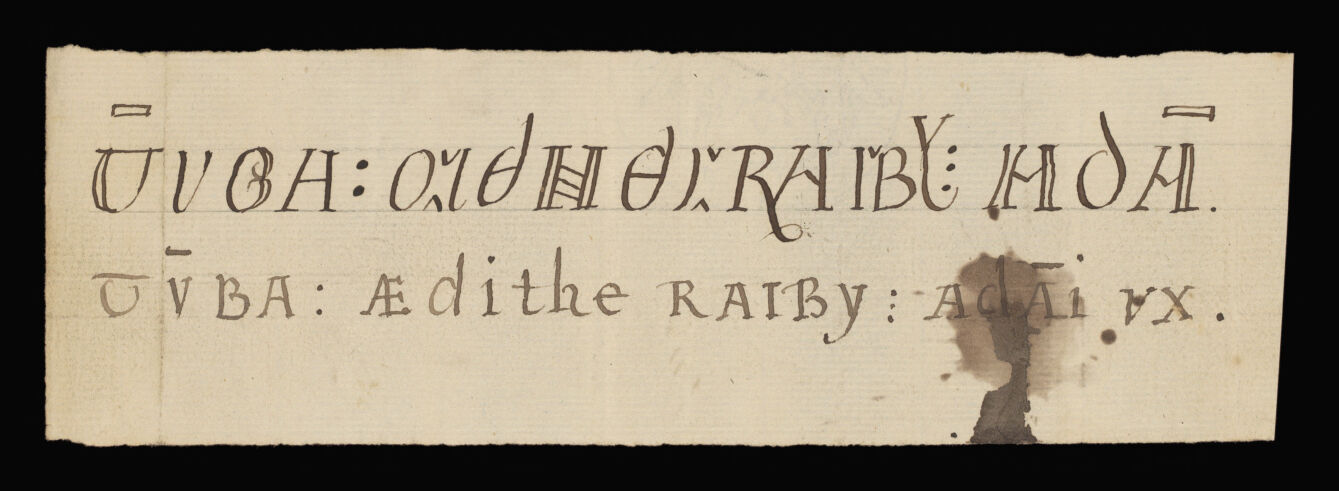 T̄VBA: ÆdHE RAIBY: AdĀ.
TV̄BA: Ædithe RAIBy: AdĀi VX.